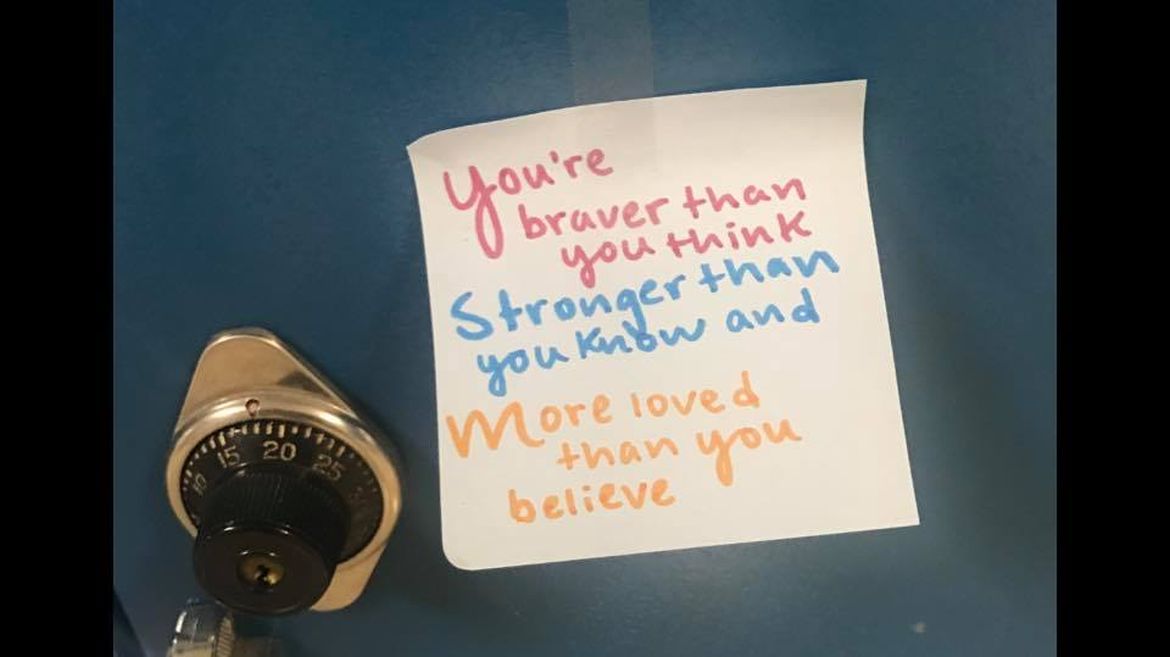 You're
braver than
you think
Stronger than
you know and
More loved
than you
believe
10 15 20 25